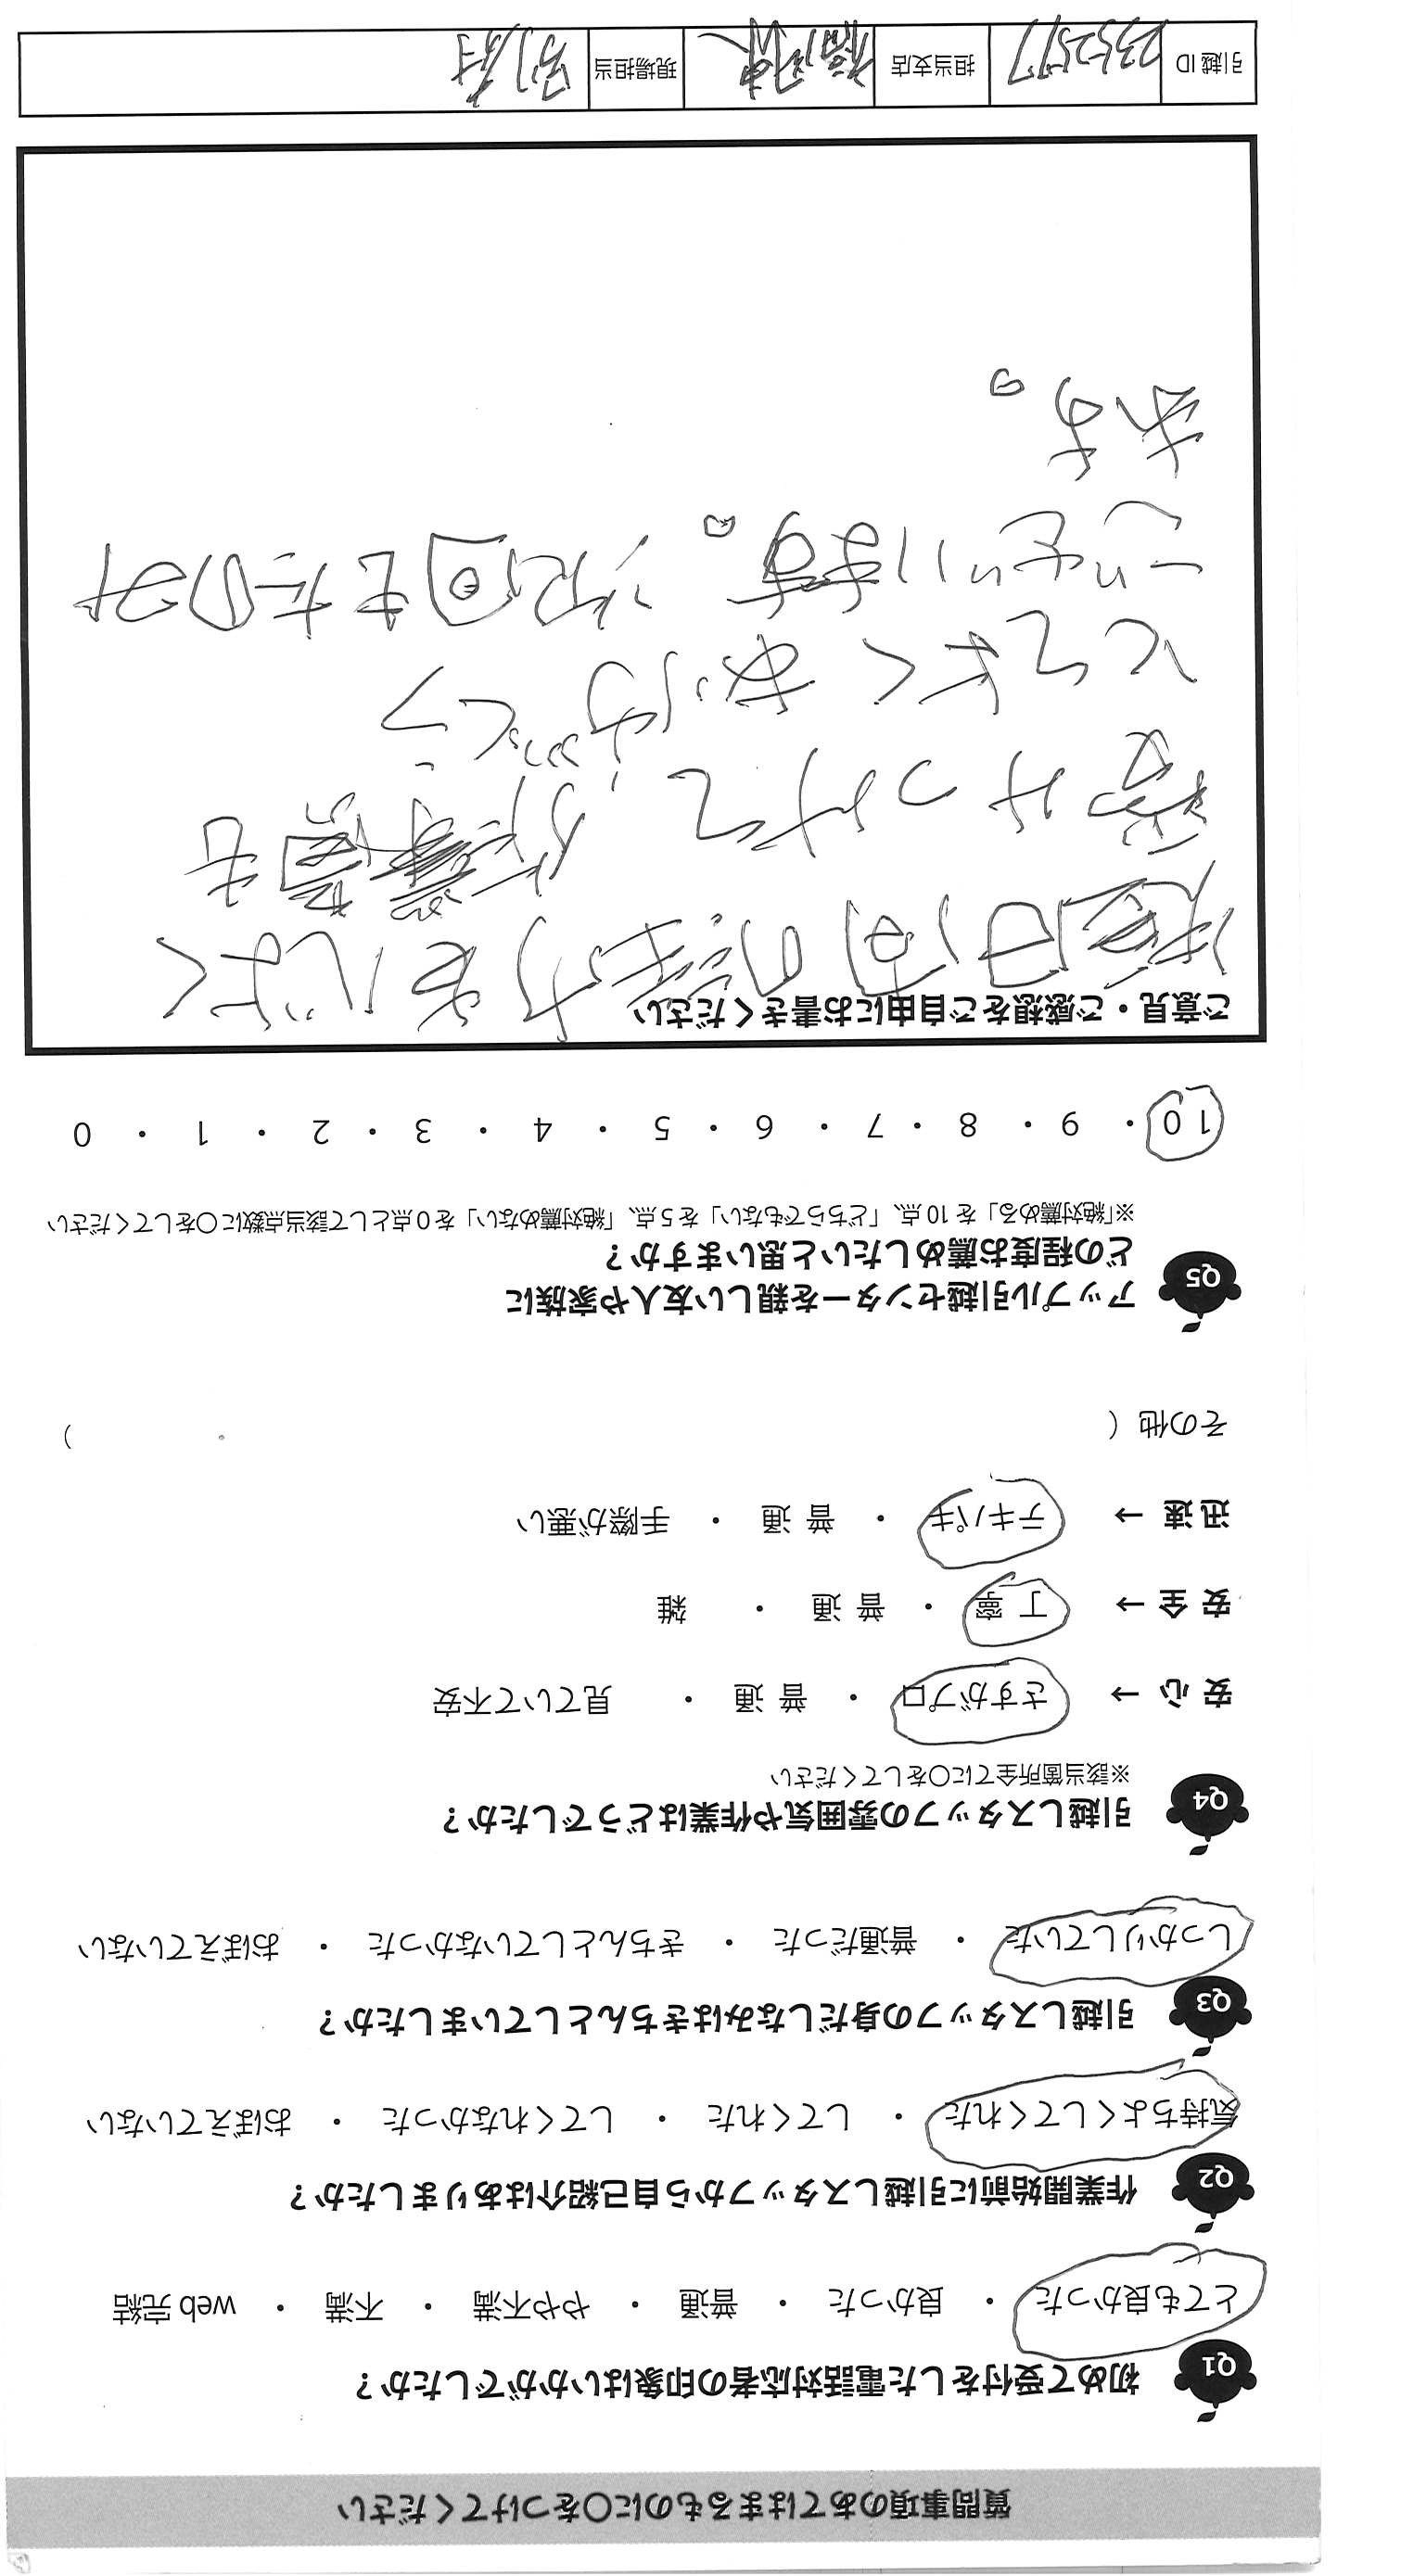 質問事項のあてはまるものに○をつけてください
Q1 初めて受付をした電話対応者の印象はいかがでしたか？
とても良かった ・ 良かった ・ 普通 ・ やや不満 ・ 不満 ・ web 完結
Q2 作業開始前に引越しスタッフから自己紹介はありましたか？
気持ちよくしてくれた ・ してくれた ・ してくれなかった ・ おぼえていない
Q3 引越しスタッフの身だしなみはきちんとしていましたか？
しっかりしていた ・ 普通だった ・ きちんとしていなかった ・ おぼえていない
Q4 引越しスタッフの雰囲気や作業はどうでしたか？
※該当箇所全てに○をしてください
安 心 → さすがプロ ・ 普 通 ・ 見ていて不安
安 全 → 丁 寧 ・ 普 通 ・ 雑
迅 速 → テキパキ ・ 普 通 ・ 手際が悪い
その他（ ）
Q5 アップル引越センターを親しい友人や家族に
どの程度お薦めしたいと思いますか？
※「絶対薦める」を 10 点、「どちらでもない」を 5 点、「絶対薦めない」を 0 点として該当点数に○をしてください
10 ・ 9 ・ 8 ・ 7 ・ 6 ・ 5 ・ 4 ・ 3 ・ 2 ・ 1 ・ 0
ご意見・ご感想をご自由にお書きください
つけて
次回もたのみ
ます。
引越 ID 担当支店 現場担当